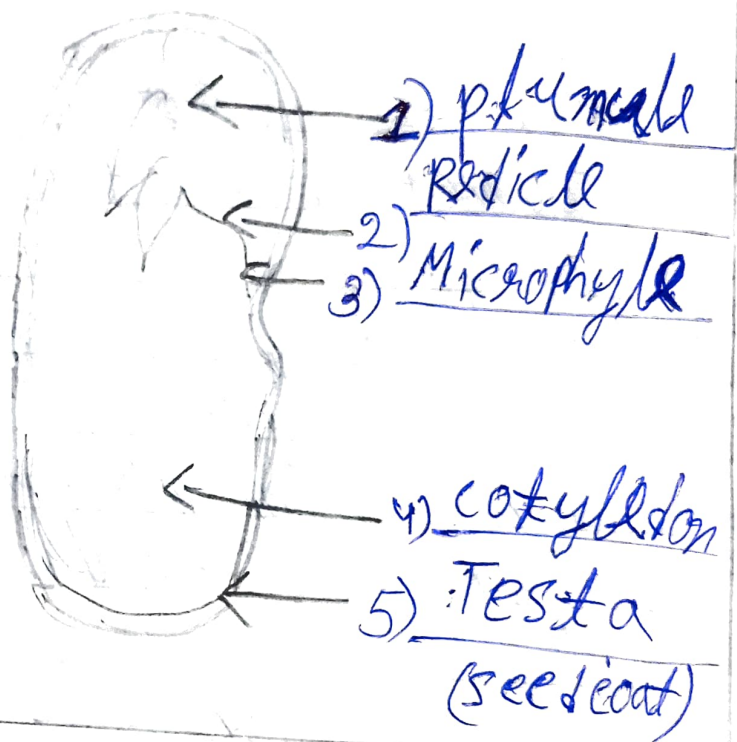 1) plumule
2) Redicle
3) Microphyle
4) cotyledon
5) Testa
(seedcoat)